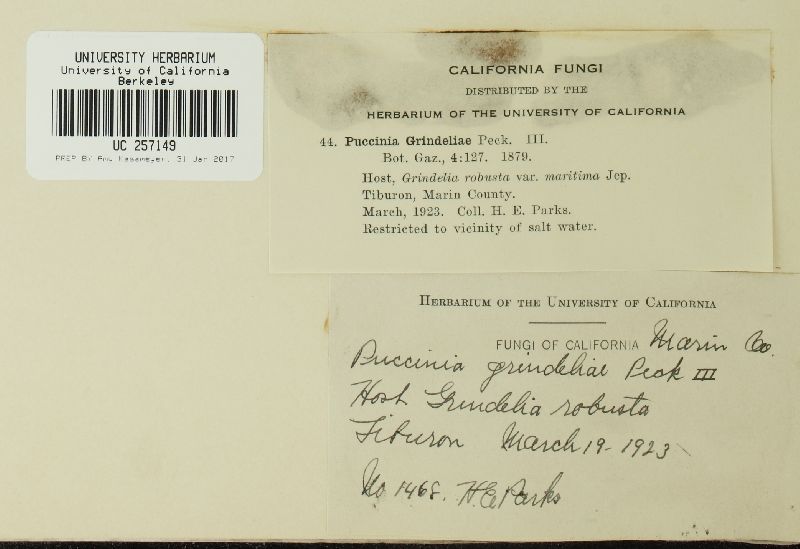 UNIVERSITY HERBARIUM
University of California
Berkeley
UC 257149
PREP BY Amy Kasameyer, 31 Jan 2017
CALIFORNIA FUNGI
DISTRIBUTED BY THE
HERBARIUM OF THE UNIVERSITY OF CALIFORNIA
44. Puccinia Grindeliae Peck. III.
Bot. Gaz., 4:127. 1879.
Host, Grindelia robusta var. maritima Jep.
Tiburon, Marin County.
March, 1923. Coll. H. E. Parks.
Restricted to vicinity of salt water.
HERBARIUM OF THE UNIVERSITY OF CALIFORNIA
FUNGI OF CALIFORNIA Marin Co.
Puccinia grindeliae Peck III
Host Grindelia robusta
Tiburon March 19-1923
No 1468. H.E. Parks